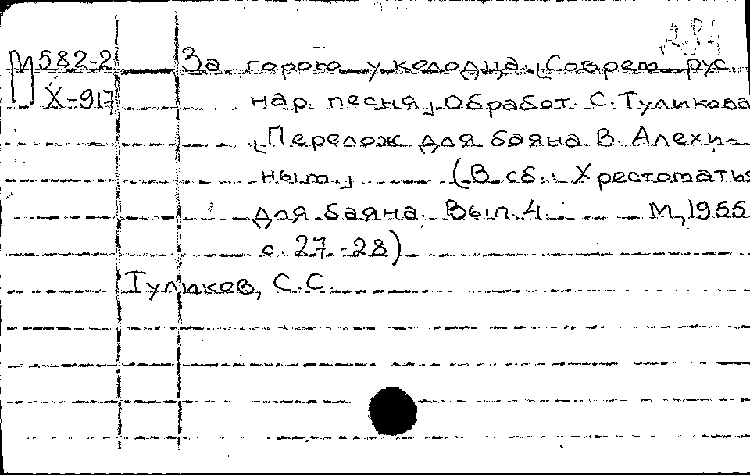 М582-2 За горою у колодца. [Соврем. рус.
Х-917 нар. песня]. Обработ. С. Туликова
[Перелож. для баяна В. Алехи-
ным]. (В сб.: Хрестоматья
для баяна. Вып. 4. М., 1955
с. 27-28)
Туликов, С.С.